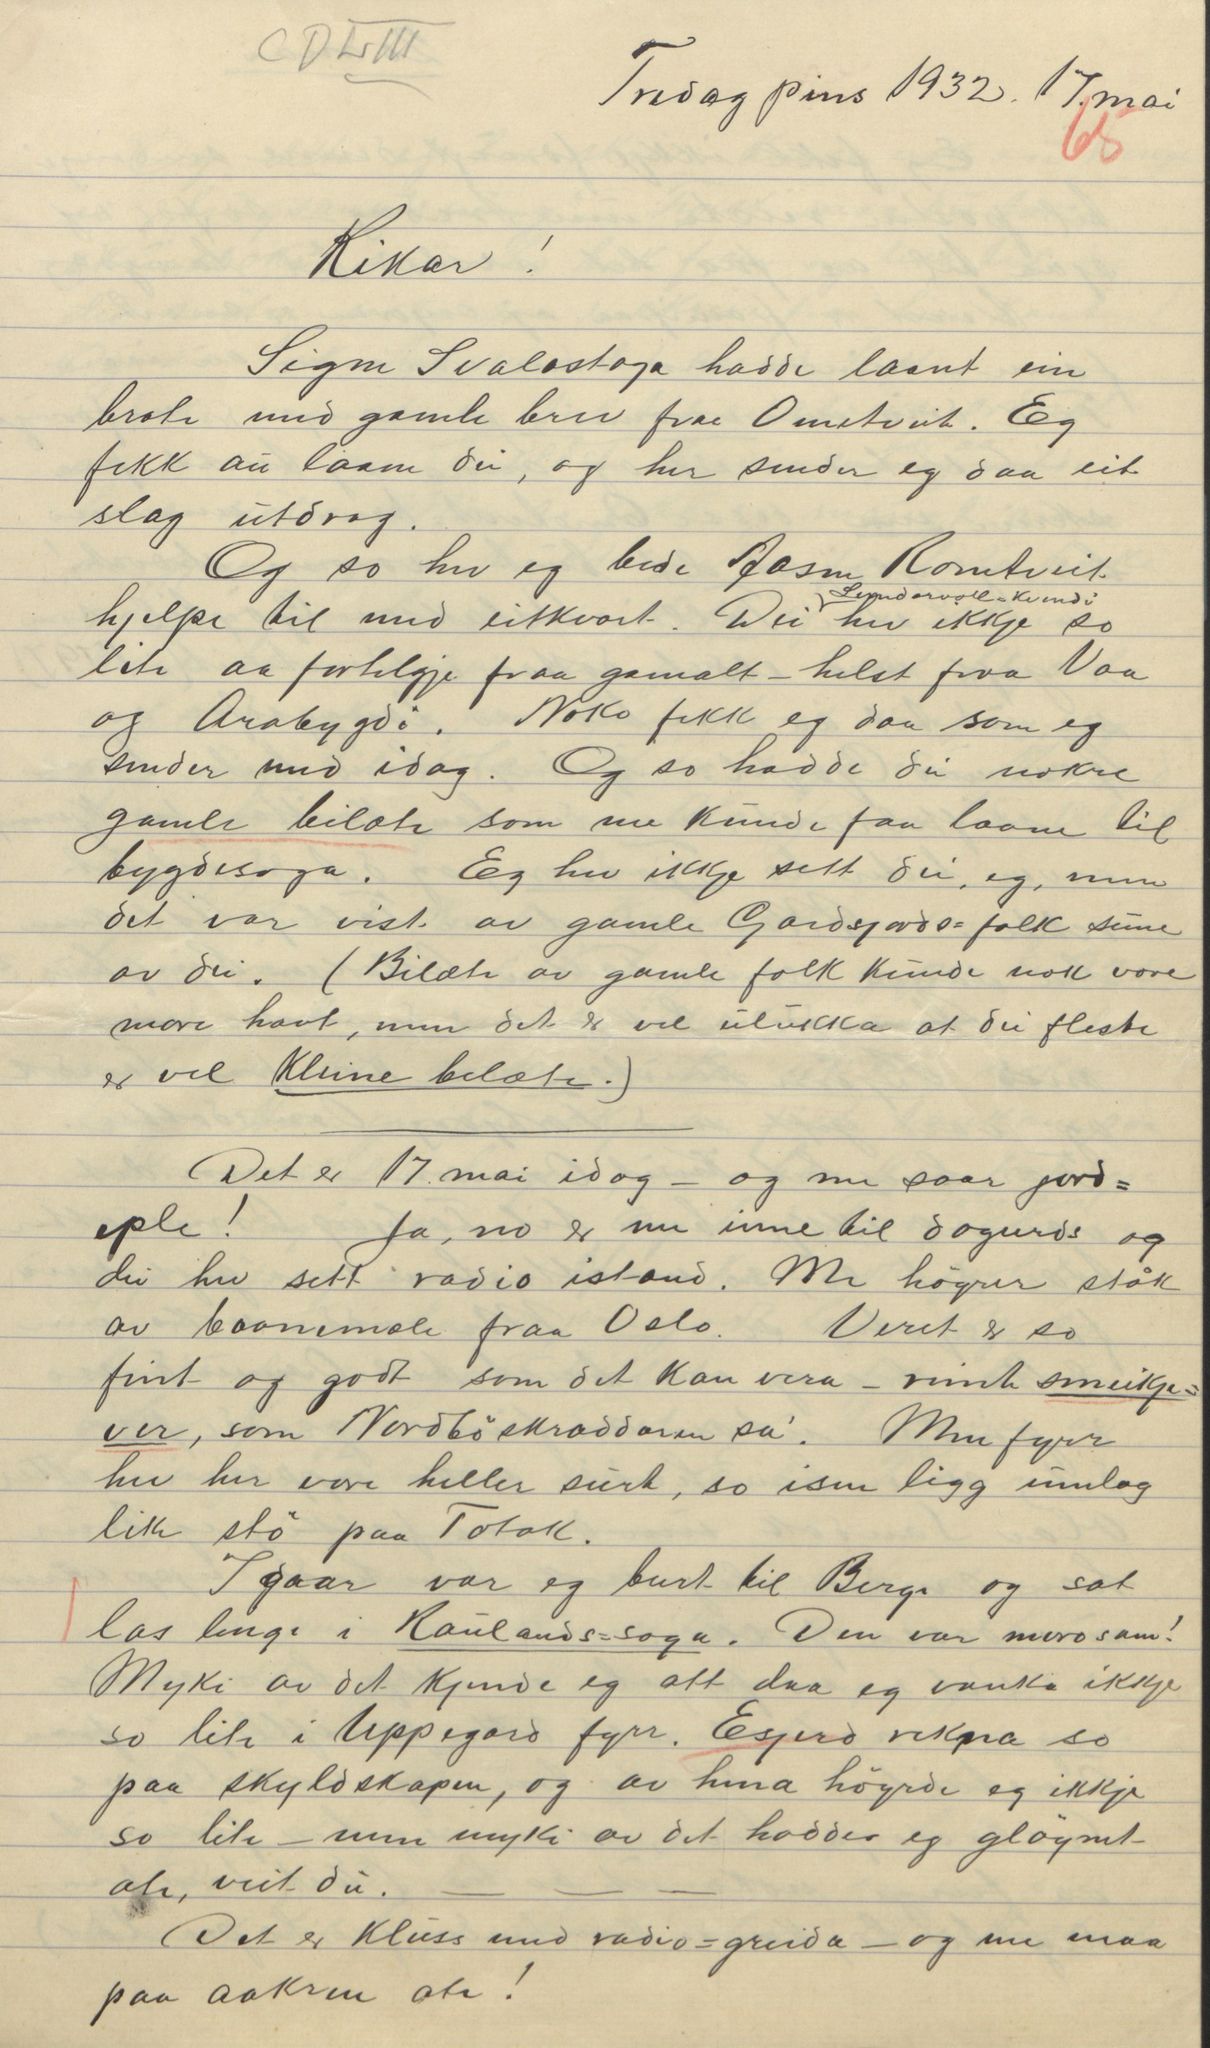 CDLVIII
Tredag pins 1932. 17. mai
65
Rikar!
Signe Svalastoga hadde laant ein
brote med gamle brev fraa Omtveit. Eg
fekk au laane dei, og her sender eg daa eit
slag utdrag.
Og so hev eg bede Aasne Romtveit
hjelpe til med eitkvart. Dei hev ikkje so
lite aa fortelgje fraa gamalt - helst fraa Vaa
og Arabygdi. Noko fekk eg daa som eg
sender med idag. Og so hadde dei nokre
gamle bilæte som me kunde faa laane til
bygdesoga. Eg hev ikkje sett dei, eg, men
det var vist av gamle Gardsjords-folk sume
av dei. (Bilæte av gamle folk kunde nok vore
more havt, men det er vel ulukka at dei fleste
er vel kleine belæte.)
Det er 17. mai idag - og me saar jord=
eple! Ja, no er me inne til dogurds og
dei hev sett radio istand. Me höyrer ståk
av baanemale fraa Oslo. Veret er so
fint og godt som det kan vera - reinte smeikje=
ver, som Nordböskraddaren sa'. Men fyrr
hev her vore heller surt, so isen ligg umlag
like stö paa Totak.
Igaar var eg burt til Berge og sat
las lenge i Raulands=soga. Den var morosam!
Myki av det kjende eg att daa eg vanka ikkje
so lite i Uppegard fyrr. Esjerd rekna so
paa skyldskapen, og av henna höyrde eg ikkje
so lite - men myki av det hadde eg glöymt
ate, veit du. — — —
Det er kluss med radio=greida - og me maa
paa aakren ate!